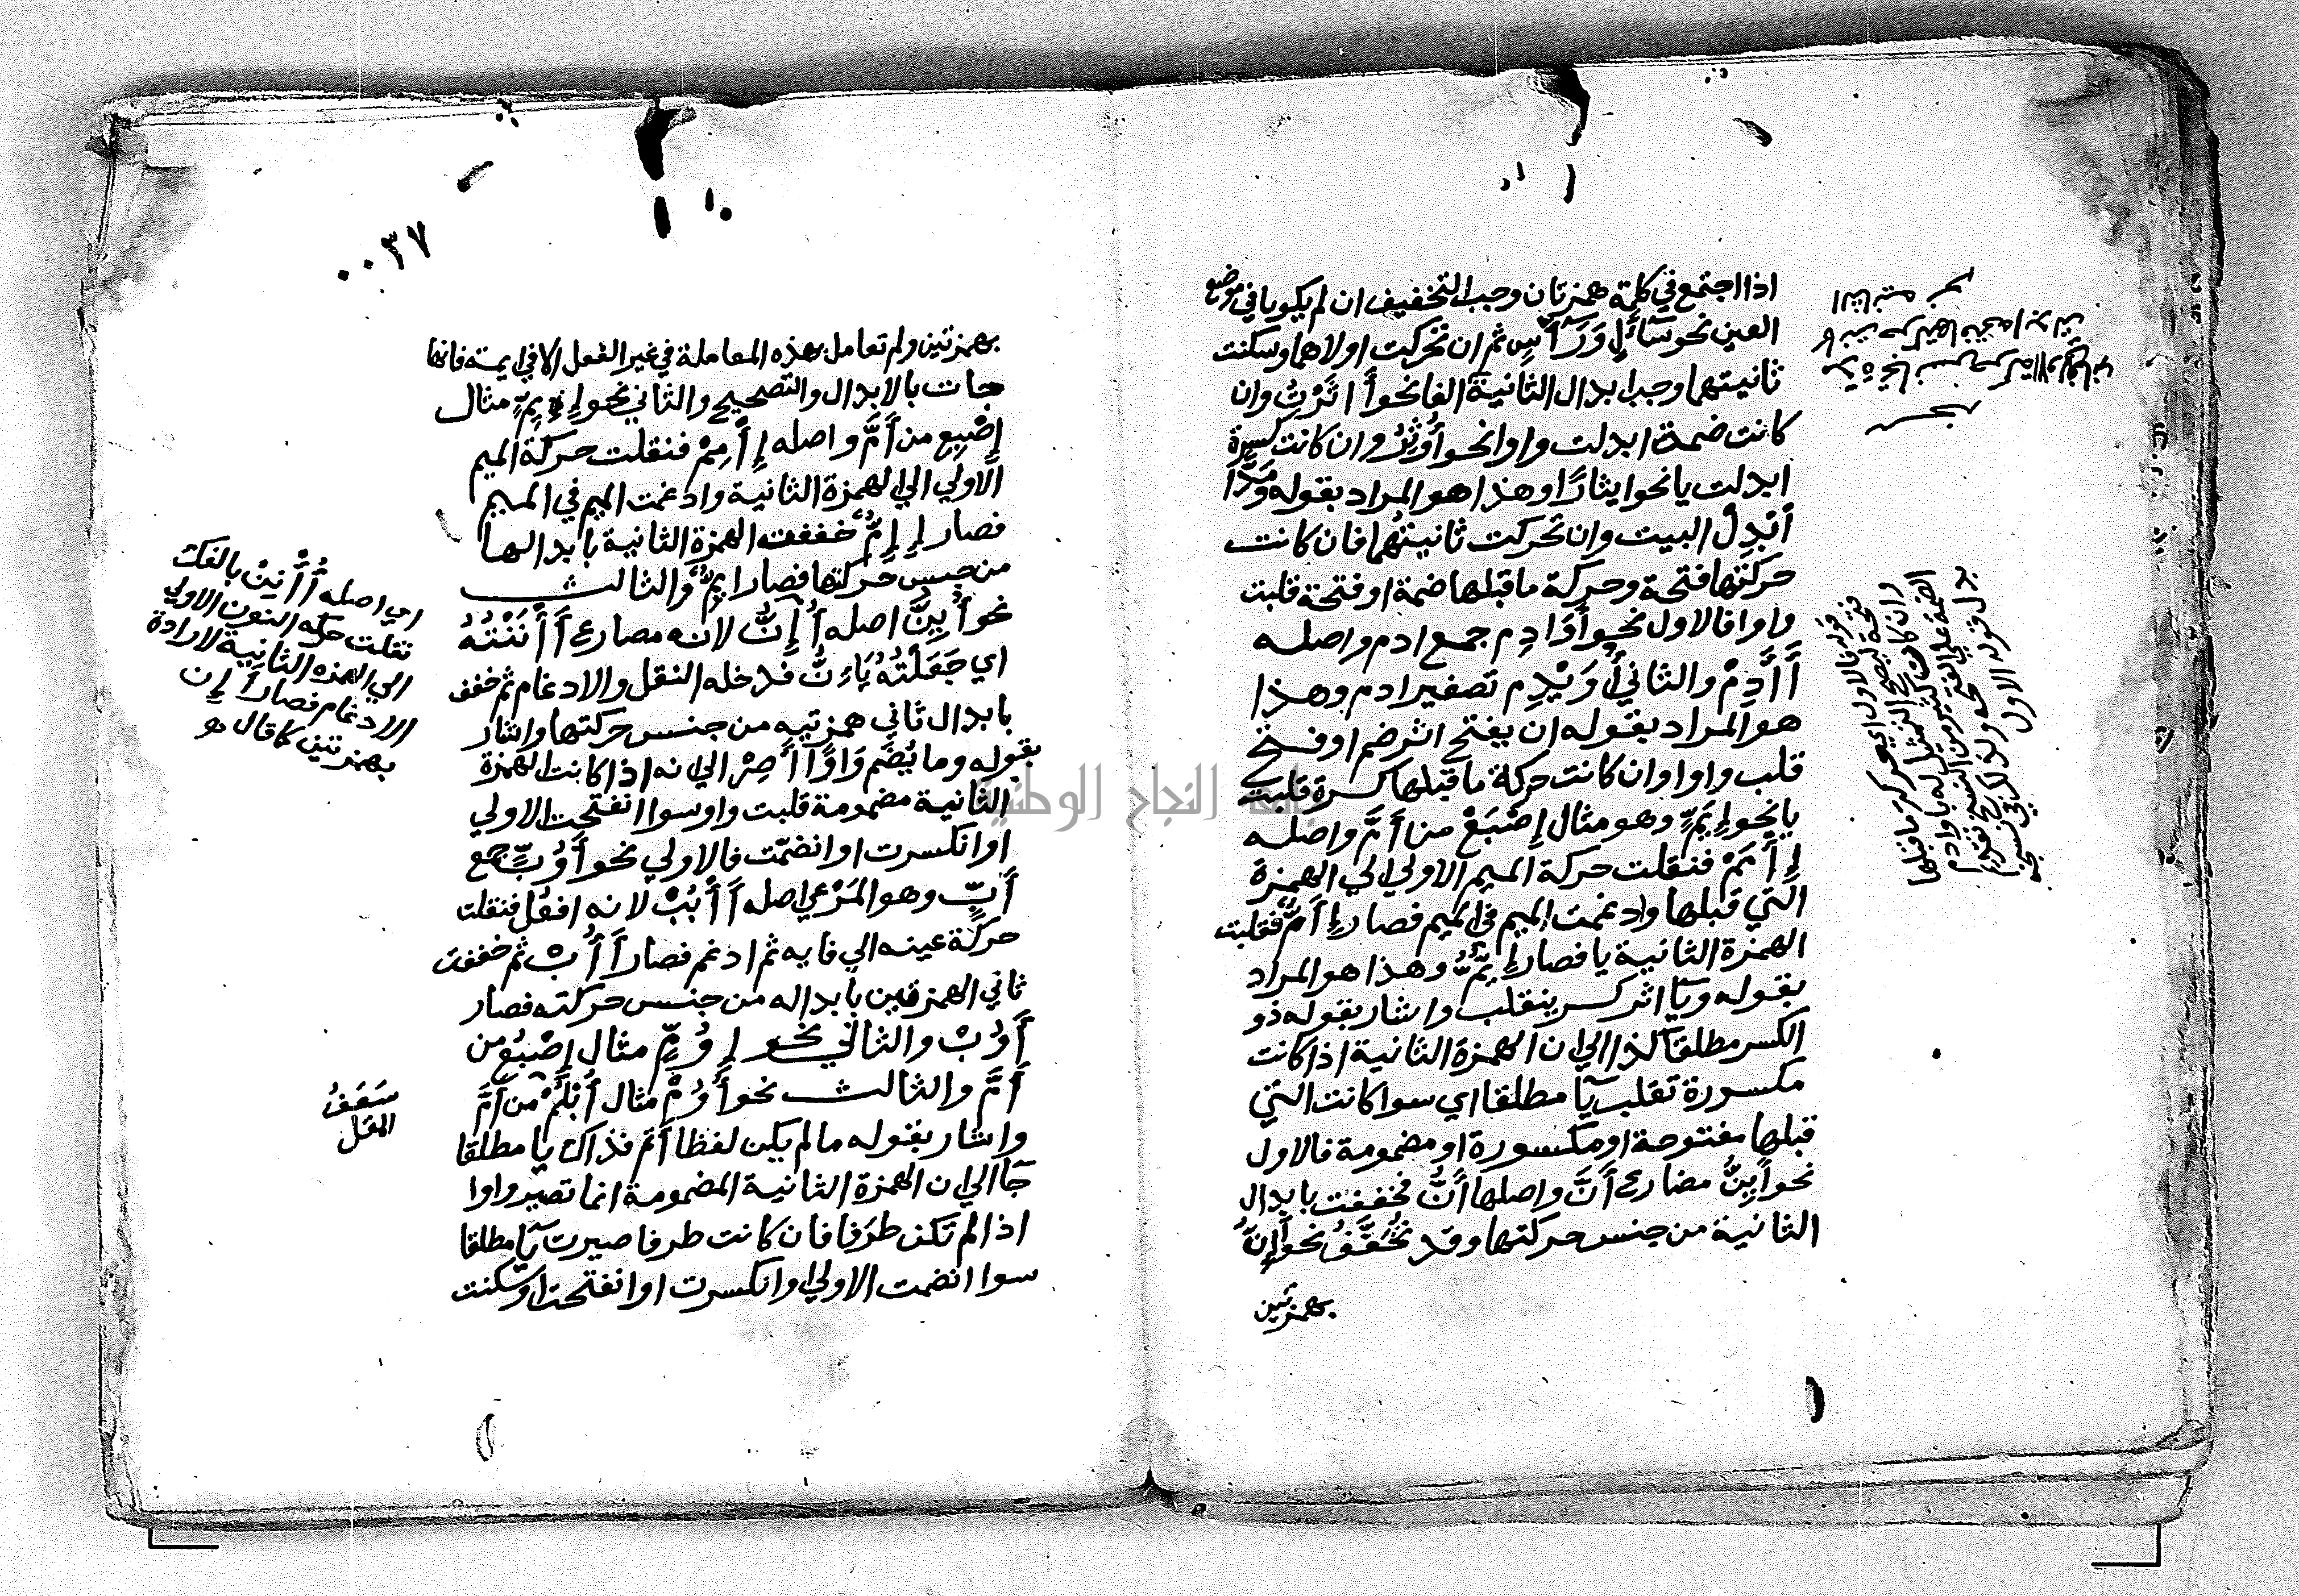 اذا اجتمع في كلمة همزتان وجب التخفيف ان لم يكونا في موضع
العين نحو سَأَّلٍ وَرَأَّسٍ ثم ان تحركت اولاهما وسكنت
ثانيتهما وجب ابدال الثانية الفا نحو أاثَرْتُ وان
كانت ضمة ابدلت واوا نحو أُوثِرُ وان كانت كسرة
ابدلت يا نحو ايثارًا وهذا هو المراد بقوله ومَدًّا
أبْدِلْ البيت وان تحركت ثانيتُهما فان كانت
حركتها فتحة وحركة ما قبلها ضمة او فتحة قلبت
واوا فالاول نحو أوَادِم جمع ادم واصله
أَأَدِمْ والثاني أُوَيْدِم تصغير ادم وهذا
هو المراد بقوله ان يفتح اثر ضم او فتح
قلب واوا وان كانت حركة ما قبلها كسرة قلبت
يا نحو إِيَمٍّ وهو مثال إِصْبَعْ من أَمَّ واصله
إِأْمَمْ فنقلت حركة الميم الاولي الي الهمزة
التي قبلها وادغمت الميم في الميم فصار إِأَمٌّ فقلبت
الهمزة الثانية يا فصار إِيَمٌّ وهذا هو المراد
بقوله ويآ اثر كسر ينقلب واشار بقوله ذو
الكسر مطلقا كذا الي ان الهمزة الثانية اذا كانت
مكسورة تقلب يآ مطلقا اي سوا كانت التي
قبلها مفتوحة او مكسورة او مضمومة فالاول
نحو أَيِنُّ مضارع أَنَّ واصلها أَئِنُّ فخففت بابدال
الثانية من جنس حركتها وقد تُخَفَّفُ نحو أَإِنُّ
بهمزتين
٠٠٣٧
بهمزتين ولم تعامل بهذه المعاملة في غير الفعل الا في ايمة فانها
جات بالابدال والتصحيح والثاني نحو إِيِمٍّ مثال
إِصْبِعٍ من أَمَّ واصله إِأْمِمْ فنقلت حركة الميم
الاولي الي الهمزة الثانية وادغمت الميم في الميم
فصار إِإِمٌّ خففت الهمزة الثانية بابدالها
من جنس حركتها فصار ايِمٌّ والثالث
نحو أُيِنُّ اصله أُإِنُّ لانه مضارع أَأْنَنْتُهُ
اي جَعَلْتُهُ يَاءِنُّ فدخله النقل والادغام ثم خفف
بابدال ثاني همزتيه من جنس حركتها واشار
بقوله وما يُضَم وَاوًا أَصِرْ الي انه اذا كانت الهمزة
الثانية مضمومة قلبت واو سوا انفتحت الاولي
او انكسرت او انضمّت فالاولي نحو أَوُبٍّ جمع
أَبٍّ وهو المَرْعي اصله أَأْبُبْ لانه افعُل فنقلت
حركة عينه الي فايه ثم ادغم فصار أَأُبّْ ثم خففت
ثاني الهمزتين بابداله من جنس حركته فصار
أَوُبّْ والثاني نحو إِوُمٍّ مثال إِصْبُع من
أَمَّ والثالث نحو أُوُمّْ مثال أُبْلُمْ من أَمَّ
واشار بقوله ما لم يكن لفظا أتم فذاك يا مطلقا
جآ الي ان الهمزة الثانية المضمومة انما تصير واوا
اذا لم تكن طرَفا فان كانت طرفا صيرت يآ مطلقا
سوا انضمت الاولي او انكسرت او انفتحت او سكنت
اي اصله أُأَنِنْ بالفك
نقلت حركة النون الاولي
الي الهمزه الثانيةَ لارادة
الادغام فصار أُإِن
بهمزتين كما قال هو
سَعَفُ
المقل